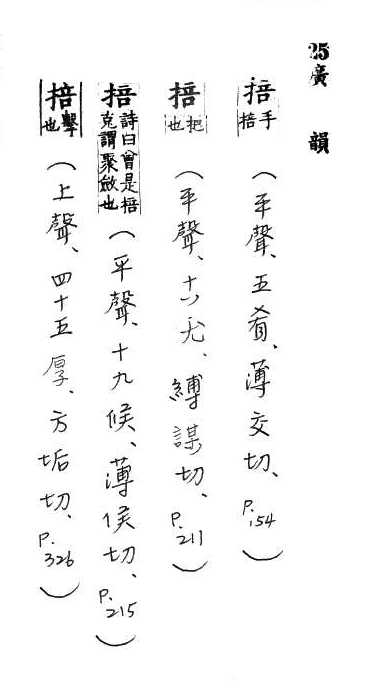 25廣韻
掊手掊(平聲、五肴、薄交切、P.154)
掊把也(平聲、十八尤、縛謀切、P.211)
掊詩曰曾是掊克謂聚斂也(平聲、十九侯、薄侯切、P.215)
掊擊也(上聲、四十五厚、方垢切、P.326)